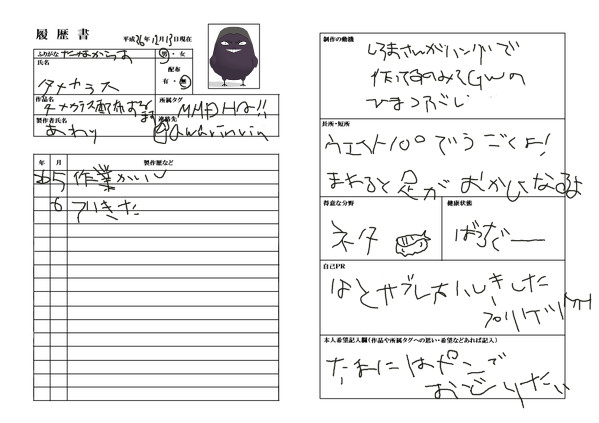 履歴書
平成26年12月13日現在
ふりがな だめからす
男・女
氏名
ダメカラス
配布
有・無
作品名
ダメカラス配布あるます
所属タグ
MMDHQ!!
製作者氏名
あわり
連絡先
@awarinrin
年 月 製作歴など
26 5 作業かいし
6 できた
制作の動機
しろまさんがハンドで
作ってるのみてGWの
ひまつぶし
長所・短所
ウエイト100でうごくよ!
まわると足がおかしくなるよ
得意な分野
ネタ
健康状態
ばっちぐー
自己PR
はとサブレ大ハしキした
プリケツ
本人希望記入欄(作品や所属タグへの思い・希望などあれば記入)
たまにはセンターで
おどりたい